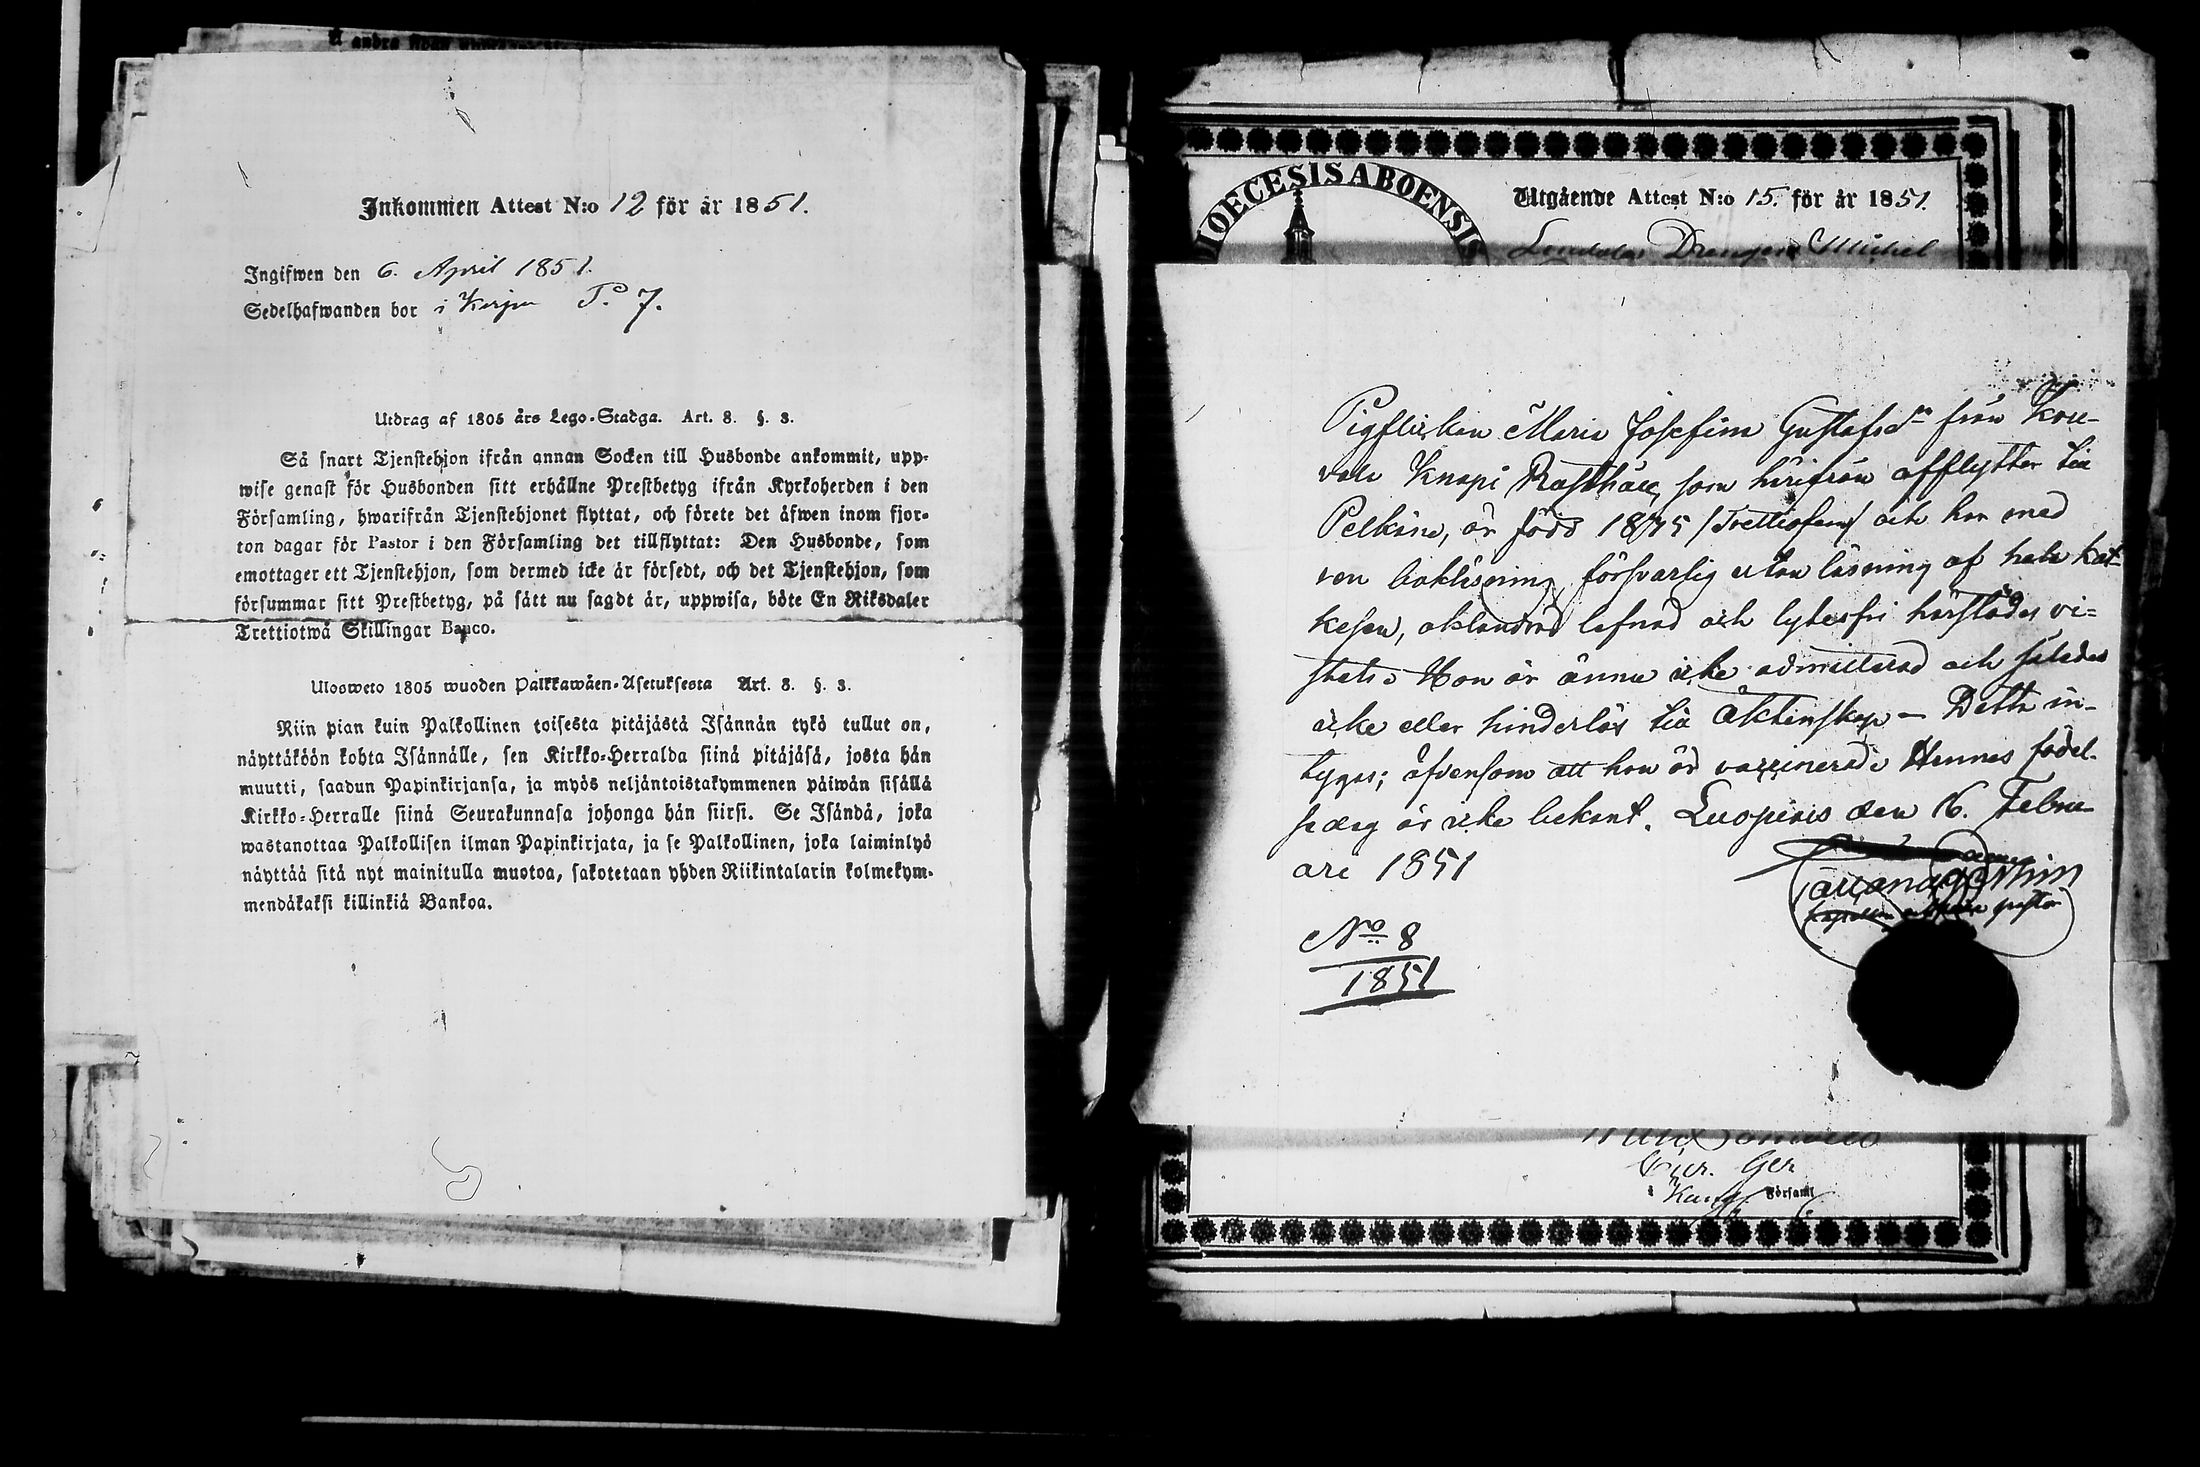 Inkommen Attest N:o 12 för år 1851.
Ingifwen den 6. April 1851.
Sedelhafwanden bor i P. 7.
Utdrag af 1805 års Lego-Stadga. Art. 8. §. 3.
Så snart Tjenstehjon ifrån annan Socken till Husbonde ankommit, upp-
wise genast för Husbonden sitt erhållne Prestbetyg ifrån Kyrkoherden i den
Församling, hwarifrån Tjenstehjonet flyttat, och förete det äfwen inom fjor-
ton dagar för Pastor i den Församling det tillflyttat: Den Husbonde, som
emottager ett Tjenstehjon, som dermed icke är försedt, och det Tjenstehjon, som
försummar sitt Prestbetyg, på sätt nu sagdt är, uppwisa, böte En Riksdaler
Trettiotwå Skillingar Banco.
Ulosweto 1805 wuoden Palkkawäen-Asetuksesta Art. 8. §. 3.
Niin pian kuin Palkollinen toisesta pitäjästä Isännän tykö tullut on,
näyttäköön kohta Isännälle, sen Kirkko-Herralda siinä pitäjäsä, josta hän
muutti, saadun Papinkirjansa, ja myös neljäntoistakymmenen päiwän sisällä
Kirkko-Herralle siinä Seurakunnasa johonga hän siirsi. Se Isändä, joka
wastanottaa Palkollisen ilman Papinkirjata, ja se Palkollinen, joka laiminlyö
näyttää sitä nyt mainitulla muotoa, sakotetaan yhden Riikintalarin kolmekym-
mendäkaksi killinkiä Bankoa.
DIOECESIS ABOENSIS
Utgående Attest N:o 15. för år 1851.
Drengen Michel
Pigflickan Maria Josefina Gustafsdr från Kou-
vala Knapi som härifrån afflyttar till
Pelkäne, är född 1835 /Trettiofem/ och har med
ren bokläsning, försvarlig utan läsning af hela kat-
kesen, oklandrad lefnad och lytesfri härstädes vi-
stats. Hon är ännu icke admitterad och således
icke eller hinderlös till äktenskap – Detta in-
tygas; äfvensom att hon är vaccinerad. Hennes födel-
sedag är icke bekant. Luopiois den 16. Febru-
ari 1851
No 8
1851
Församl.